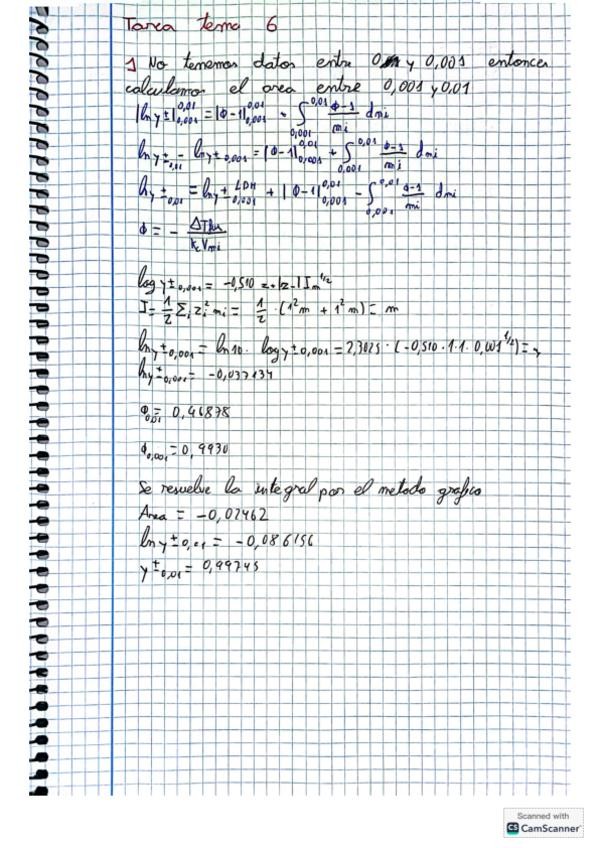 Tarea tema 6
1 No tenemos datos entre 0 y 0,001 entonces
calculamos el area entre 0,001 y 0,01
|ln γ±|₀,₀₀₁^0,01 = |Φ-1|₀,₀₀₁^0,01 + ∫₀,₀₀₁^0,01 Φ-1/mi dmi
ln γ±₀,₀₁ - ln γ±₀,₀₀₁ = |Φ-1|₀,₀₀₁^0,01 + ∫₀,₀₀₁^0,01 Φ-1/mi dmi
ln γ±₀,₀₁ = ln γ±₀,₀₀₁^LDH + |Φ-1|₀,₀₀₁^0,01 - ∫₀,₀₀₁^0,01 Φ-1/mi dmi
Φ = - ΔTfus/kc V mi
log γ±₀,₀₀₁ = -0,510 z+ |z-| Im^1/2
I = 1/2 Σi zi² mi = 1/2 · (1²m + 1²m) = m
ln γ±₀,₀₀₁ = ln 10 · log γ±₀,₀₀₁ = 2,3025 · (-0,510 · 1 · 1 · 0,001^1/2) =
ln γ±₀,₀₀₁ = -0,037134
Φ₀,₀₁ = 0,96878
Φ₀,₀₀₁ = 0,9930
Se resuelve la integral por el metodo grafico
Area = -0,02462
ln γ±₀,₀₁ = -0,086156
γ±₀,₀₁ = 0,99745
Scanned with
CS CamScanner